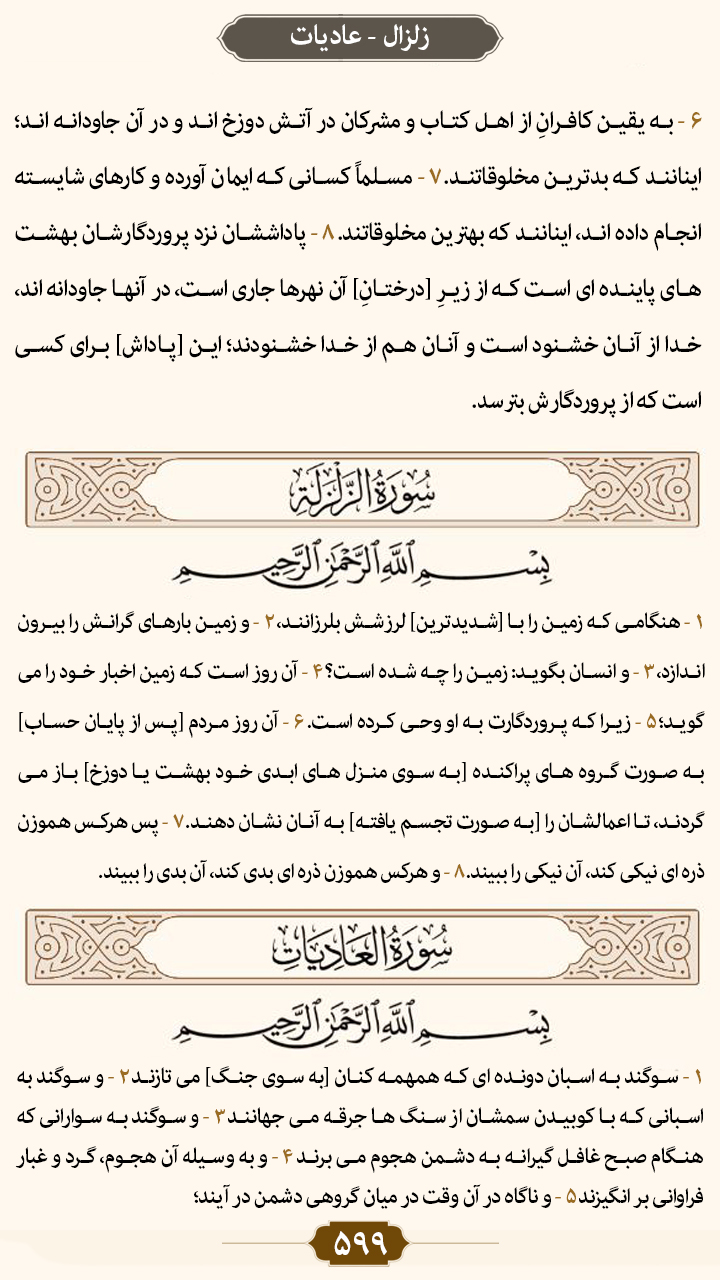 زلزال - عادیات
۶ - به یقین کافرانِ از اهل کتاب و مشرکان در آتش دوزخ اند و در آن جاودانه اند؛
اینانند که بدترین مخلوقاتند. ۷ - مسلماً کسانی که ایمان آورده و کارهای شایسته
انجام داده اند، اینانند که بهترین مخلوقاتند. ۸ - پاداششان نزد پروردگارشان بهشت
های پاینده ای است که از زیرِ [درختانِ] آن نهرها جاری است، در آنها جاودانه اند،
خدا از آنان خشنود است و آنان هم از خدا خشنودند؛ این [پاداش] برای کسی
است که از پروردگارش بترسد.
سُورَةُ الزَّلْزَلَةِ
بِسْمِ ٱللَّهِ ٱلرَّحْمَٰنِ ٱلرَّحِيمِ
۱ - هنگامی که زمین را با [شدیدترین] لرزشش بلرزانند، ۲ - و زمین بارهای گرانش را بیرون
اندازد، ۳ - و انسان بگوید: زمین را چه شده است؟ ۴ - آن روز است که زمین اخبار خود را می
گوید؛ ۵ - زیرا که پروردگارت به او وحی کرده است. ۶ - آن روز مردم [پس از پایان حساب]
به صورت گروه های پراکنده [به سوی منزل های ابدی خود بهشت یا دوزخ] باز می
گردند، تا اعمالشان را [به صورت تجسم یافته] به آنان نشان دهند. ۷ - پس هرکس هموزن
ذره ای نیکی کند، آن نیکی را ببیند. ۸ - و هرکس هموزن ذره ای بدی کند، آن بدی را ببیند.
سُورَةُ العَادِيَاتِ
بِسْمِ ٱللَّهِ ٱلرَّحْمَٰنِ ٱلرَّحِيمِ
۱ - سوگند به اسبان دونده ای که همهمه کنان [به سوی جنگ] می تازند ۲ - و سوگند به
اسبانی که با کوبیدن سمشان از سنگ ها جرقه می جهانند ۳ - و سوگند به سوارانی که
هنگام صبح غافل گیرانه به دشمن هجوم می برند ۴ - و به وسیله آن هجوم، گرد و غبار
فراوانی بر انگیزند ۵ - و ناگاه در آن وقت در میان گروهی دشمن در آیند؛
۵۹۹